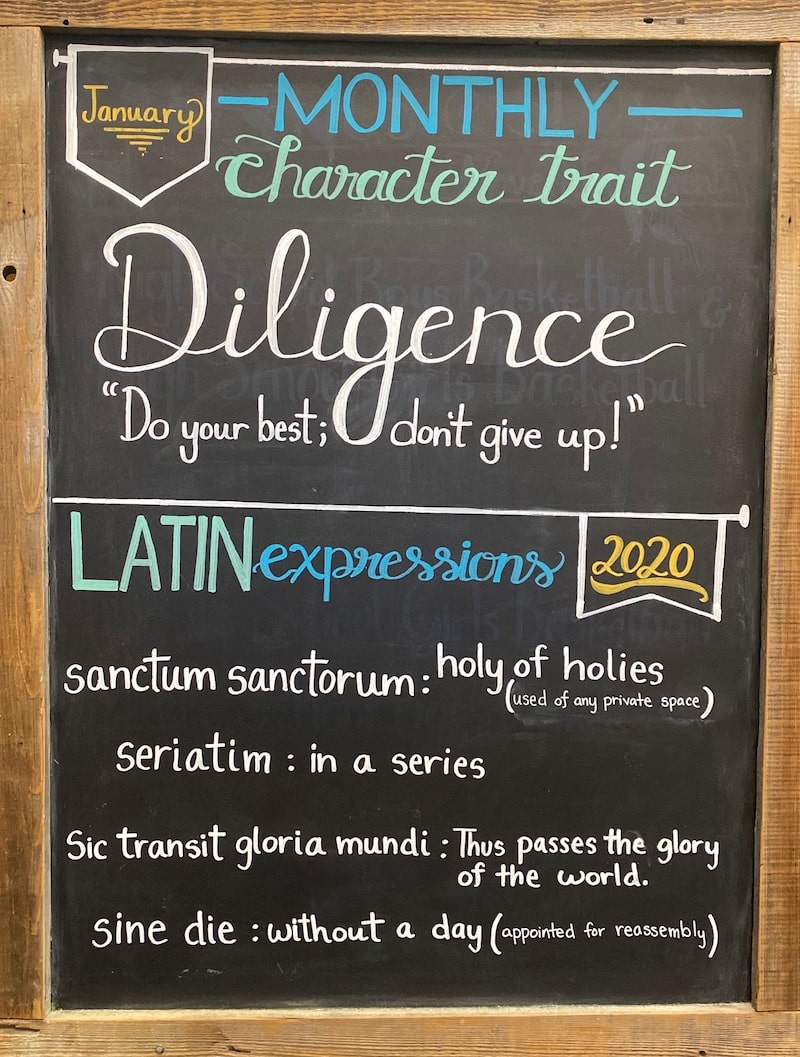 January
—MONTHLY—
character trait
Diligence
"Do your best; don't give up!"
LATIN expressions 2020
sanctum sanctorum: holy of holies
(used of any private space)
seriatim : in a series
Sic transit gloria mundi : Thus passes the glory
of the world.
sine die : without a day (appointed for reassembly)